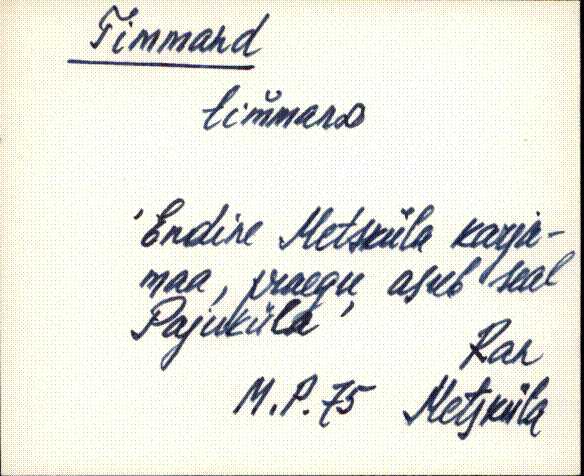 Timmard
'Endine Metsküla karja-
maa, praegu asub seal
Pajuküla'
Ran
M.P.75 Metsküla